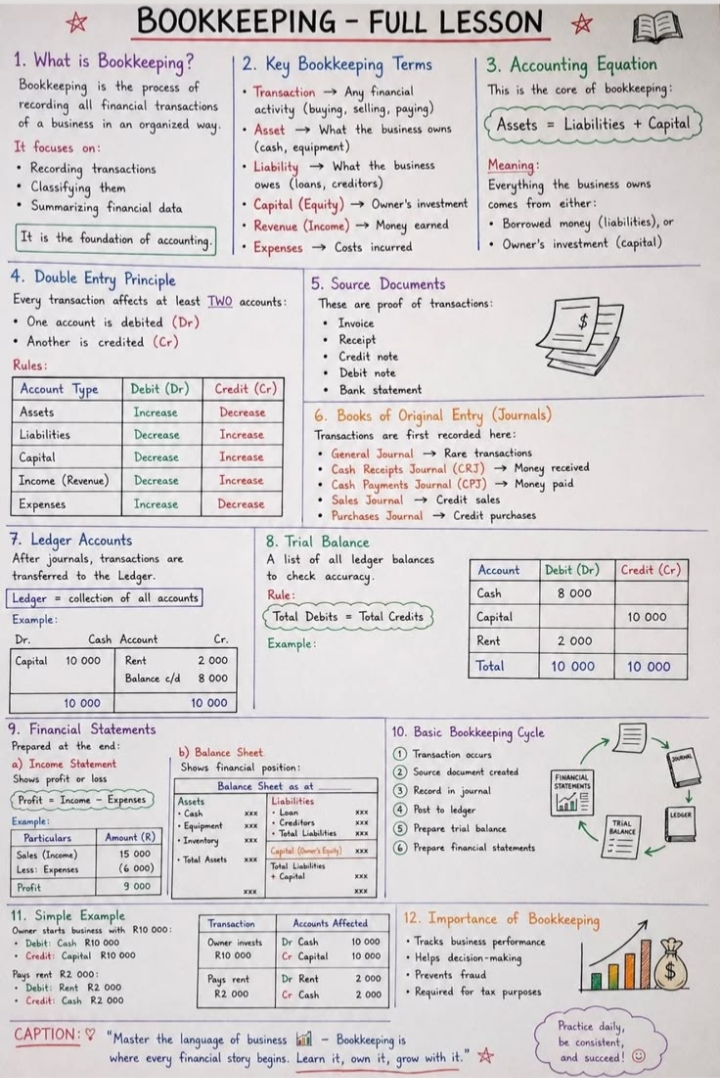 BOOKKEEPING – FULL LESSON
1. What is Bookkeeping?
Bookkeeping is the process of
recording all financial transactions
of a business in an organized way.
It focuses on:
• Recording transactions
• Classifying them
• Summarizing financial data
It is the foundation of accounting.
2. Key Bookkeeping Terms
• Transaction → Any financial
activity (buying, selling, paying)
• Asset → What the business owns
(cash, equipment)
• Liability → What the business
owes (loans, creditors)
• Capital (Equity) → Owner's investment
• Revenue (Income) → Money earned
• Expenses → Costs incurred
3. Accounting Equation
This is the core of bookkeeping:
Assets = Liabilities + Capital
Meaning:
Everything the business owns
comes from either:
• Borrowed money (liabilities), or
• Owner's investment (capital)
4. Double Entry Principle
Every transaction affects at least TWO accounts:
• One account is debited (Dr)
• Another is credited (Cr)
Rules:
Account Type Debit (Dr) Credit (Cr)
Assets Increase Decrease
Liabilities Decrease Increase
Capital Decrease Increase
Income (Revenue) Decrease Increase
Expenses Increase Decrease
5. Source Documents
These are proof of transactions:
• Invoice
• Receipt
• Credit note
• Debit note
• Bank statement
$
6. Books of Original Entry (Journals)
Transactions are first recorded here:
• General Journal → Rare transactions
• Cash Receipts Journal (CRJ) → Money received
• Cash Payments Journal (CPJ) → Money paid
• Sales Journal → Credit sales
• Purchases Journal → Credit purchases
7. Ledger Accounts
After journals, transactions are
transferred to the Ledger.
Ledger = collection of all accounts
Example:
Dr. Cash Account Cr.
Capital 10 000 Rent 2 000
Balance c/d 8 000
10 000 10 000
8. Trial Balance
A list of all ledger balances
to check accuracy.
Rule:
Total Debits = Total Credits
Example:
Account Debit (Dr) Credit (Cr)
Cash 8 000
Capital 10 000
Rent 2 000
Total 10 000 10 000
9. Financial Statements
Prepared at the end:
a) Income Statement
Shows profit or loss
Profit = Income – Expenses
Example:
Particulars Amount (R)
Sales (Income) 15 000
Less: Expenses (6 000)
Profit 9 000
b) Balance Sheet
Shows financial position:
Balance Sheet as at ______
Assets
• Cash xxx
• Equipment xxx
• Inventory xxx
• Total Assets xxx
xxx
Liabilities
• Loan xxx
• Creditors xxx
• Total Liabilities xxx
Capital (Owner's Equity) xxx
Total Liabilities
+ Capital xxx
xxx
10. Basic Bookkeeping Cycle
1 Transaction occurs
2 Source document created
3 Record in journal
4 Post to ledger
5 Prepare trial balance
6 Prepare financial statements
JOURNAL
LEDGER
TRIAL
BALANCE
FINANCIAL
STATEMENTS
11. Simple Example
Owner starts business with R10 000:
• Debit: Cash R10 000
• Credit: Capital R10 000
Pays rent R2 000:
• Debit: Rent R2 000
• Credit: Cash R2 000
Transaction Accounts Affected
Owner invests Dr Cash 10 000
R10 000 Cr Capital 10 000
Pays rent Dr Rent 2 000
R2 000 Cr Cash 2 000
12. Importance of Bookkeeping
• Tracks business performance
• Helps decision-making
• Prevents fraud
• Required for tax purposes
$
CAPTION: ♡ "Master the language of business 📊 – Bookkeeping is
where every financial story begins. Learn it, own it, grow with it."
Practice daily,
be consistent,
and succeed! ☺